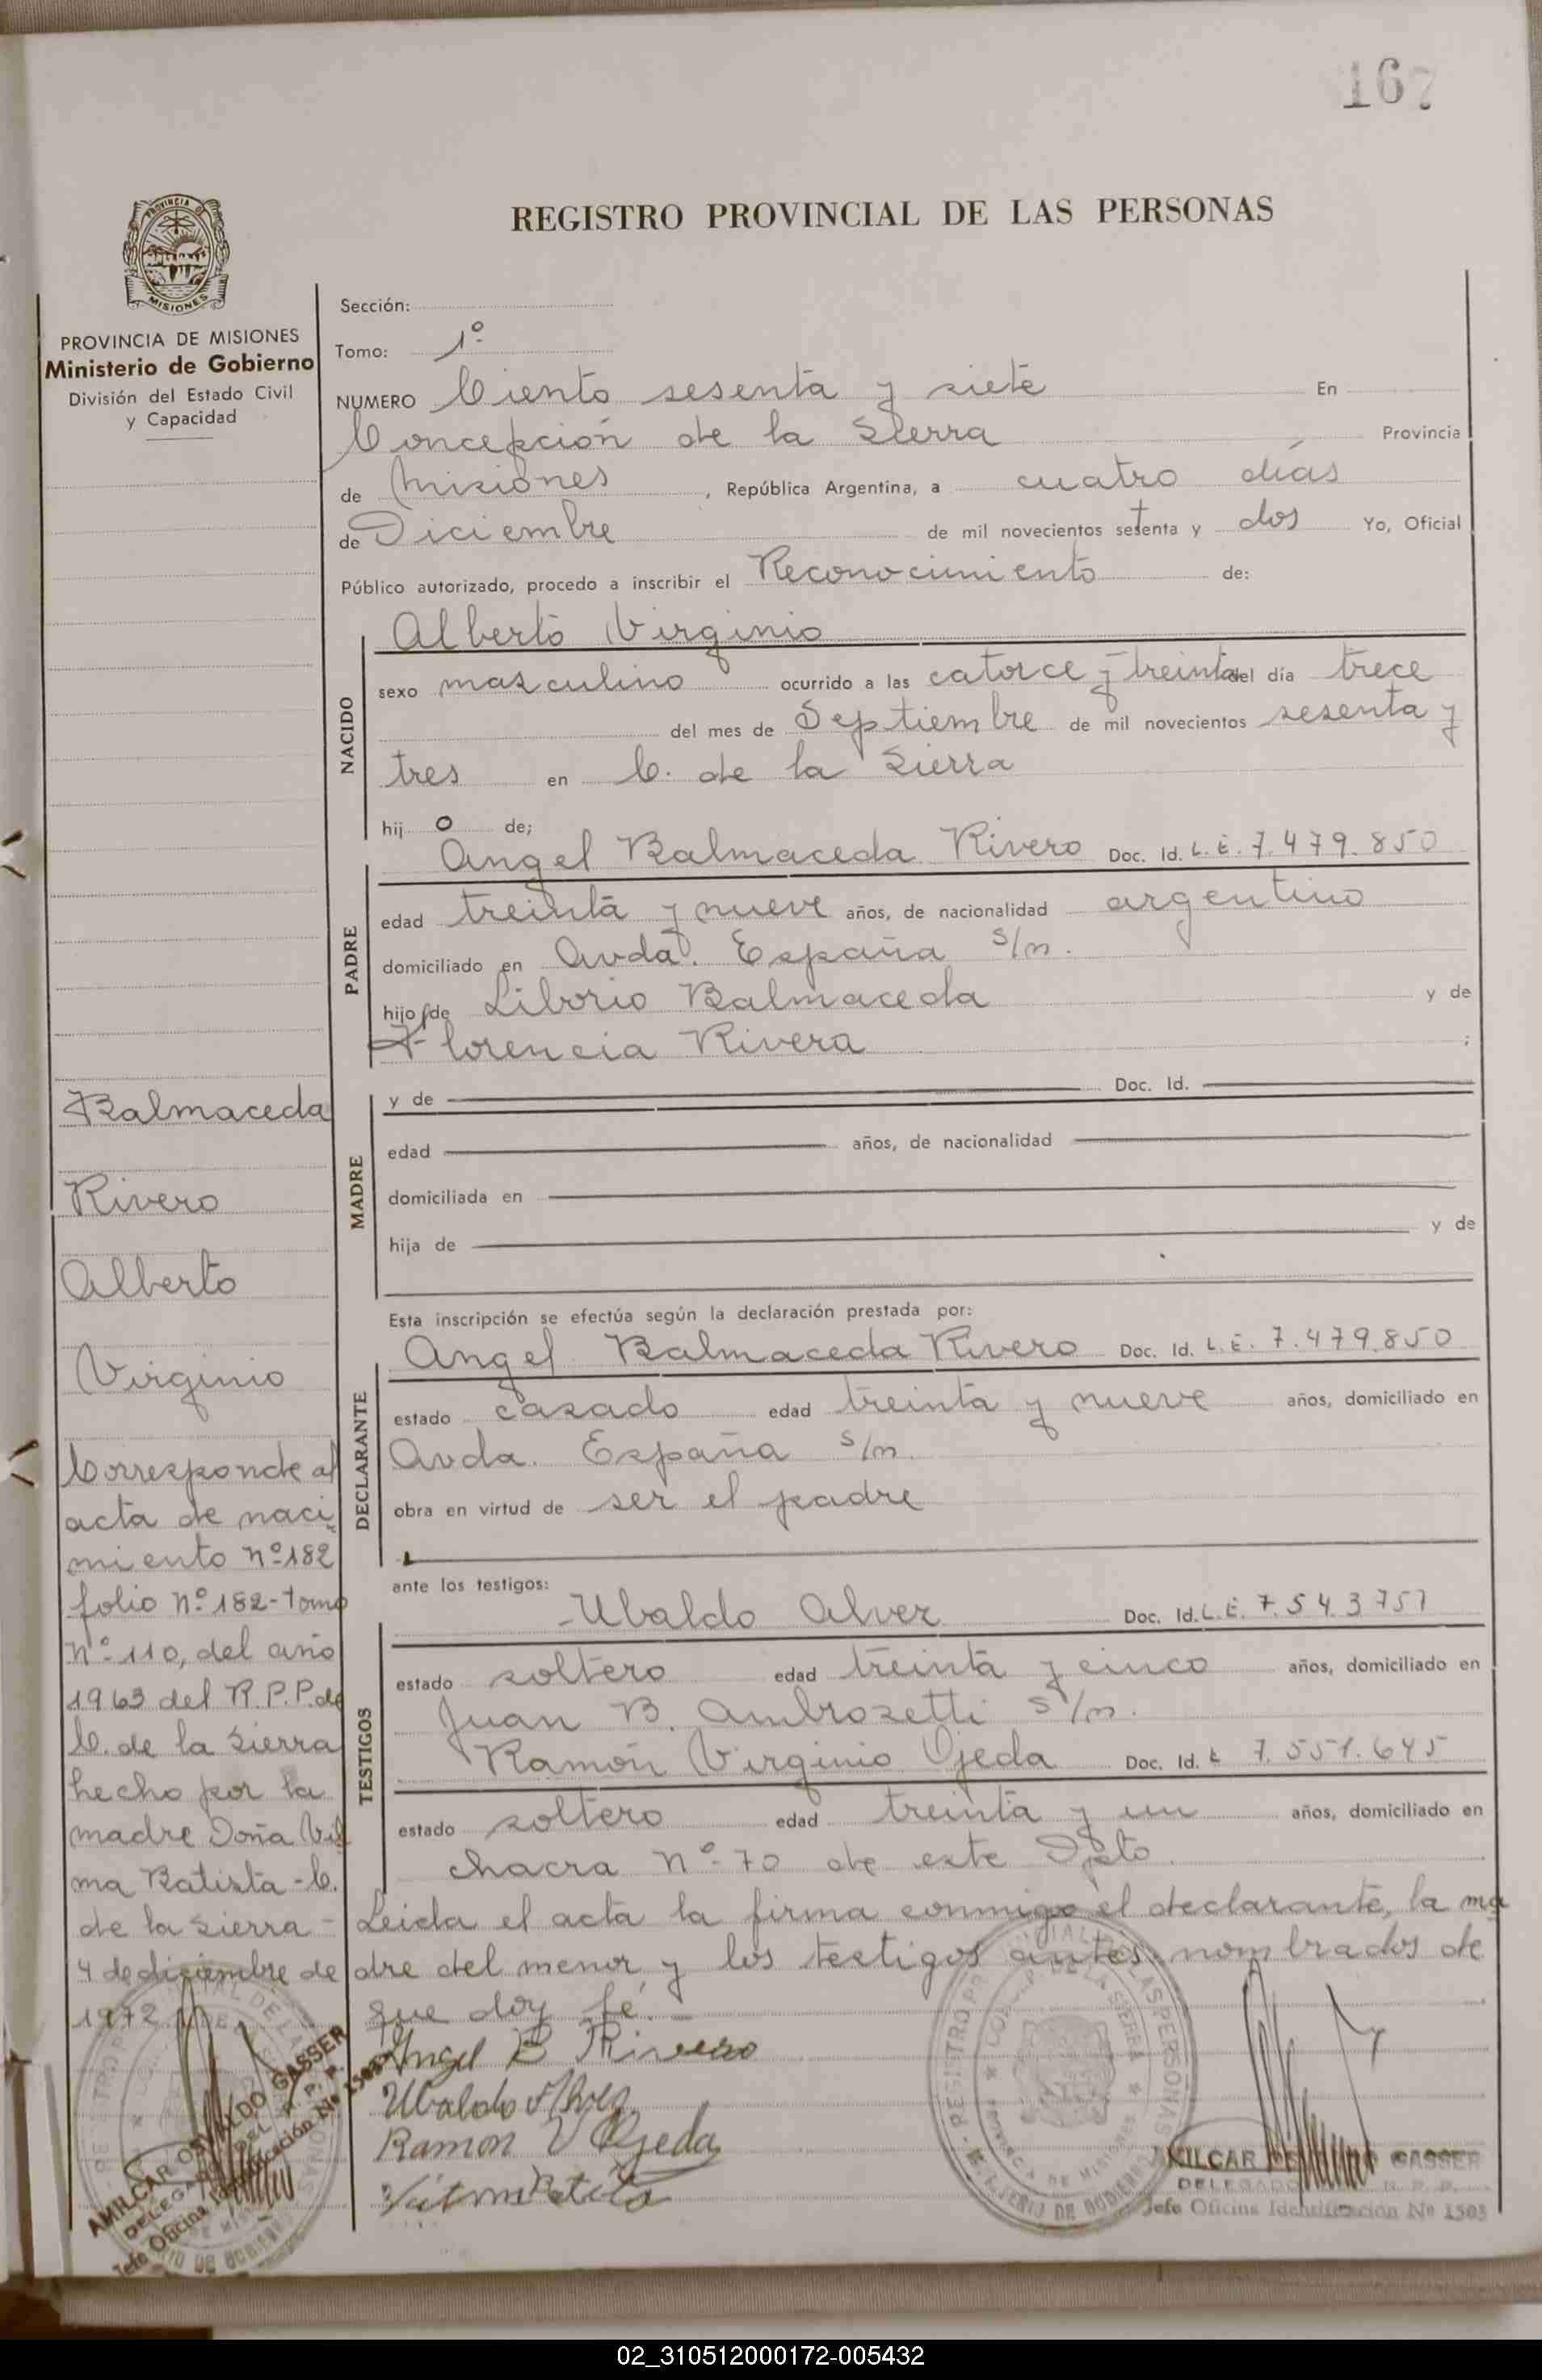 167
REGISTRO PROVINCIAL DE LAS PERSONAS
PROVINCIA DE MISIONES
Ministerio de Gobierno
División del Estado Civil
y Capacidad
Sección:
Tomo: 1º
NUMERO Ciento sesenta y siete En
Concepción de la Sierra Provincia
de Misiones, República Argentina, a cuatro días
de Diciembre de mil novecientos setenta y dos Yo, Oficial
Público autorizado, procedo a inscribir el Reconocimiento de:
NACIDO
Alberto Virginio
sexo masculino ocurrido a las catorce y treinta del día trece
del mes de Septiembre de mil novecientos sesenta y
tres en C. de la Sierra
hij o de;
PADRE
Angel Balmaceda Rivero Doc. Id. L.E. 7.479.850
edad treinta y nueve años, de nacionalidad argentino
domiciliado en Avda. España s/n.
hijo de Liborio Balmaceda y de
Florencia Rivera ;
MADRE
y de Doc. Id.
edad años, de nacionalidad
domiciliada en
hija de y de
Esta inscripción se efectúa según la declaración prestada por:
DECLARANTE
Angel Balmaceda Rivero Doc. Id. L.E. 7.479.850
estado casado edad treinta y nueve años, domiciliado en
Avda. España s/n.
obra en virtud de ser el padre
ante los testigos:
TESTIGOS
Ubaldo Alvez Doc. Id. L.E. 7.543.757
estado soltero edad treinta y cinco años, domiciliado en
Juan B. Ambrosetti s/n.
Ramón Virginio Ojeda Doc. Id. 7.551.645
estado soltero edad treinta y un años, domiciliado en
chacra nº 70 de este Dpto.
Leida el acta la firma conmigo el declarante, la ma
dre del menor y los testigos antes nombrados de
que doy fé.
Angel B Rivero
Ubaldo Alvez
Ramon V Ojeda
Vilma Batista
AMILCAR GASSER
DELEGADO R. P. P.
Jefe Oficina Identificación Nº 1505
Balmaceda
Rivero
Alberto
Virginio
Corresponde al
acta de naci
miento nº 182
folio nº 182-tomo
nº 110, del año
1963 del R.P.P. de
C. de la Sierra
hecho por la
madre Doña Vil
ma Batista - C.
de la Sierra -
4 de diciembre de
1972
AMILCAR OSVALDO GASSER
DELEGADO DEL R. P. P.
Jefe Oficina Identificación Nº 1505
02_310512000172-005432